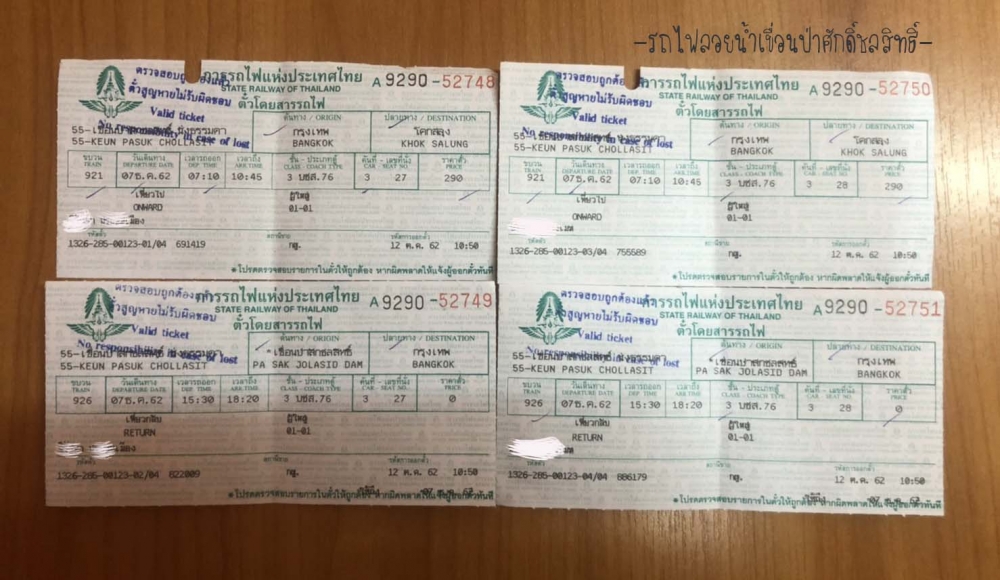 -รถไฟลอยน้ำเขื่อนป่าศักดิ์ชลสิทธิ์-
ตรวจสอบถูกต้องแล้ว
ตั๋วสูญหายไม่รับผิดชอบ
Valid ticket
No responsibility in case of lost
การรถไฟแห่งประเทศไทย
STATE RAILWAY OF THAILAND
ตั๋วโดยสารรถไฟ
A 9290-52748
55-KEUN PASUK CHOLLASIT
ต้นทาง / ORIGIN
กรุงเทพ
BANGKOK
ปลายทาง / DESTINATION
โคกสลุง
KHOK SALUNG
ขบวน วันเดินทาง เวลารถออก เวลาถึง ชั้น - ประเภทตู้ คันที่ - เลขที่นั่ง ราคาตั๋ว
TRAIN DEPARTURE DATE DEP. TIME ARR.TIME CLASS - COACH TYPE CAR SEAT NO. PRICE
921 07ธ.ค.62 07:10 10:45 3 บชส.76 3 27 290
เที่ยวไป
ONWARD
ผู้ใหญ่
01-01
รหัสตั๋ว
1326-285-00123-01/04 691419 กฎ. 12 ต.ค. 62 10:50
*โปรดตรวจสอบรายการในตั๋วให้ถูกต้อง หากผิดพลาดให้แจ้งผู้ออกตั๋วทันที
ตรวจสอบถูกต้องแล้ว
ตั๋วสูญหายไม่รับผิดชอบ
Valid ticket
No responsibility in case of lost
การรถไฟแห่งประเทศไทย
STATE RAILWAY OF THAILAND
ตั๋วโดยสารรถไฟ
A 9290-52750
55-KEUN PASUK CHOLLASIT
ต้นทาง / ORIGIN
กรุงเทพ
BANGKOK
ปลายทาง / DESTINATION
โคกสลุง
KHOK SALUNG
ขบวน วันเดินทาง เวลารถออก เวลาถึง ชั้น - ประเภทตู้ คันที่ - เลขที่นั่ง ราคาตั๋ว
TRAIN DEPARTURE DATE DEP. TIME ARR.TIME CLASS - COACH TYPE CAR SEAT NO. PRICE
921 07ธ.ค.62 07:10 10:45 3 บชส.76 3 28 290
เที่ยวไป
ONWARD
ผู้ใหญ่
01-01
รหัสตั๋ว
1326-285-00123-03/04 755589 กฎ. 12 ต.ค. 62 10:50
*โปรดตรวจสอบรายการในตั๋วให้ถูกต้อง หากผิดพลาดให้แจ้งผู้ออกตั๋วทันที
ตรวจสอบถูกต้องแล้ว
ตั๋วสูญหายไม่รับผิดชอบ
Valid ticket
No responsibility in case of lost
การรถไฟแห่งประเทศไทย
STATE RAILWAY OF THAILAND
ตั๋วโดยสารรถไฟ
A 9290-52749
55-KEUN PASUK CHOLLASIT
ต้นทาง / ORIGIN
PA SAK JOLASID DAM
ปลายทาง / DESTINATION
กรุงเทพ
BANGKOK
ขบวน วันเดินทาง เวลารถออก เวลาถึง ชั้น - ประเภทตู้ คันที่ - เลขที่นั่ง ราคาตั๋ว
TRAIN DEPARTURE DATE DEP. TIME ARR.TIME CLASS - COACH TYPE CAR SEAT NO. PRICE
926 07ธ.ค.62 15:30 18:20 3 บชส.76 3 27 0
เที่ยวกลับ
RETURN
ผู้ใหญ่
01-01
รหัสตั๋ว
1326-285-00123-02/04 822009 กฎ. 12 ต.ค. 62 10:50
*โปรดตรวจสอบรายการในตั๋วให้ถูกต้อง หากผิดพลาดให้แจ้งผู้ออกตั๋วทันที
ตรวจสอบถูกต้องแล้ว
ตั๋วสูญหายไม่รับผิดชอบ
Valid ticket
No responsibility in case of lost
การรถไฟแห่งประเทศไทย
STATE RAILWAY OF THAILAND
ตั๋วโดยสารรถไฟ
A 9290-52751
55-KEUN PASUK CHOLLASIT
ต้นทาง / ORIGIN
PA SAK JOLASID DAM
ปลายทาง / DESTINATION
กรุงเทพ
BANGKOK
ขบวน วันเดินทาง เวลารถออก เวลาถึง ชั้น - ประเภทตู้ คันที่ - เลขที่นั่ง ราคาตั๋ว
TRAIN DEPARTURE DATE DEP. TIME ARR.TIME CLASS - COACH TYPE CAR SEAT NO. PRICE
926 07ธ.ค.62 15:30 18:20 3 บชส.76 3 28 0
เที่ยวกลับ
RETURN
ผู้ใหญ่
01-01
รหัสตั๋ว
1326-285-00123-04/04 886179 กฎ. 12 ต.ค. 62 10:50
*โปรดตรวจสอบรายการในตั๋วให้ถูกต้อง หากผิดพลาดให้แจ้งผู้ออกตั๋วทันที